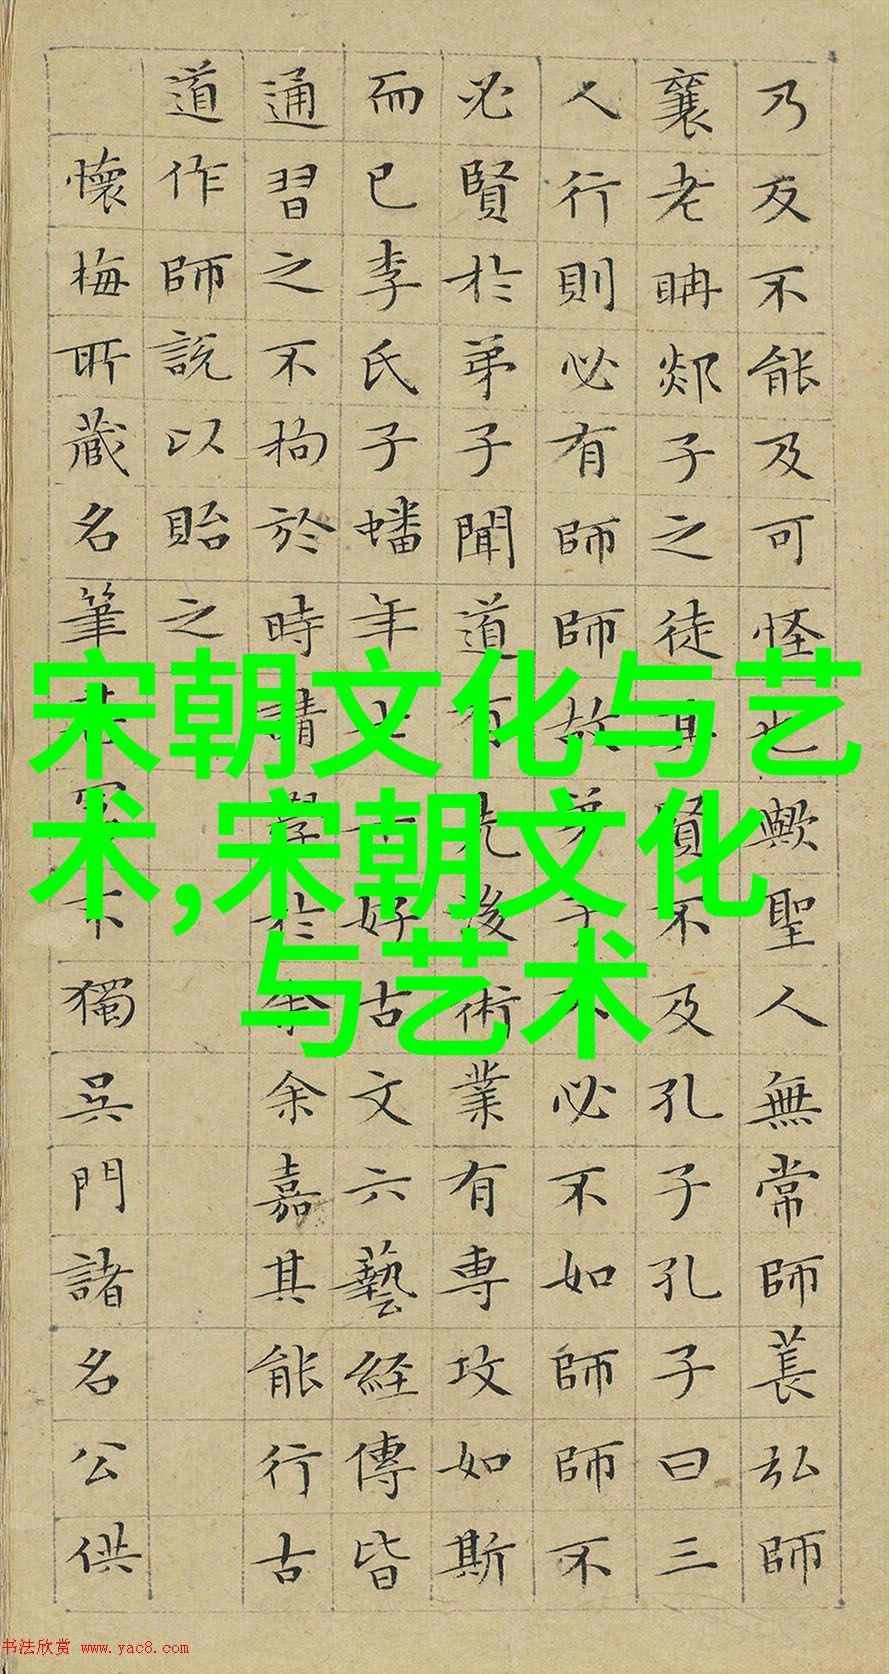 乃反不能及可怪也歟聖人無常師萇弘師
襄老聃郯子之徒其賢不及孔子孔子曰三
人行則必有師師故弟子不必不如師師不
必賢於弟子聞道有先後術業有專攻如斯
而已李氏子蟠年好古文六藝經傳皆
通習之不拘於時請學於余余嘉其能行古
道作師說以貽之
懷梅所藏名筆獨吳門諸名公供
宋朝文化与艺
术,宋朝文化
与艺术
书法欣赏 www.yac8.com